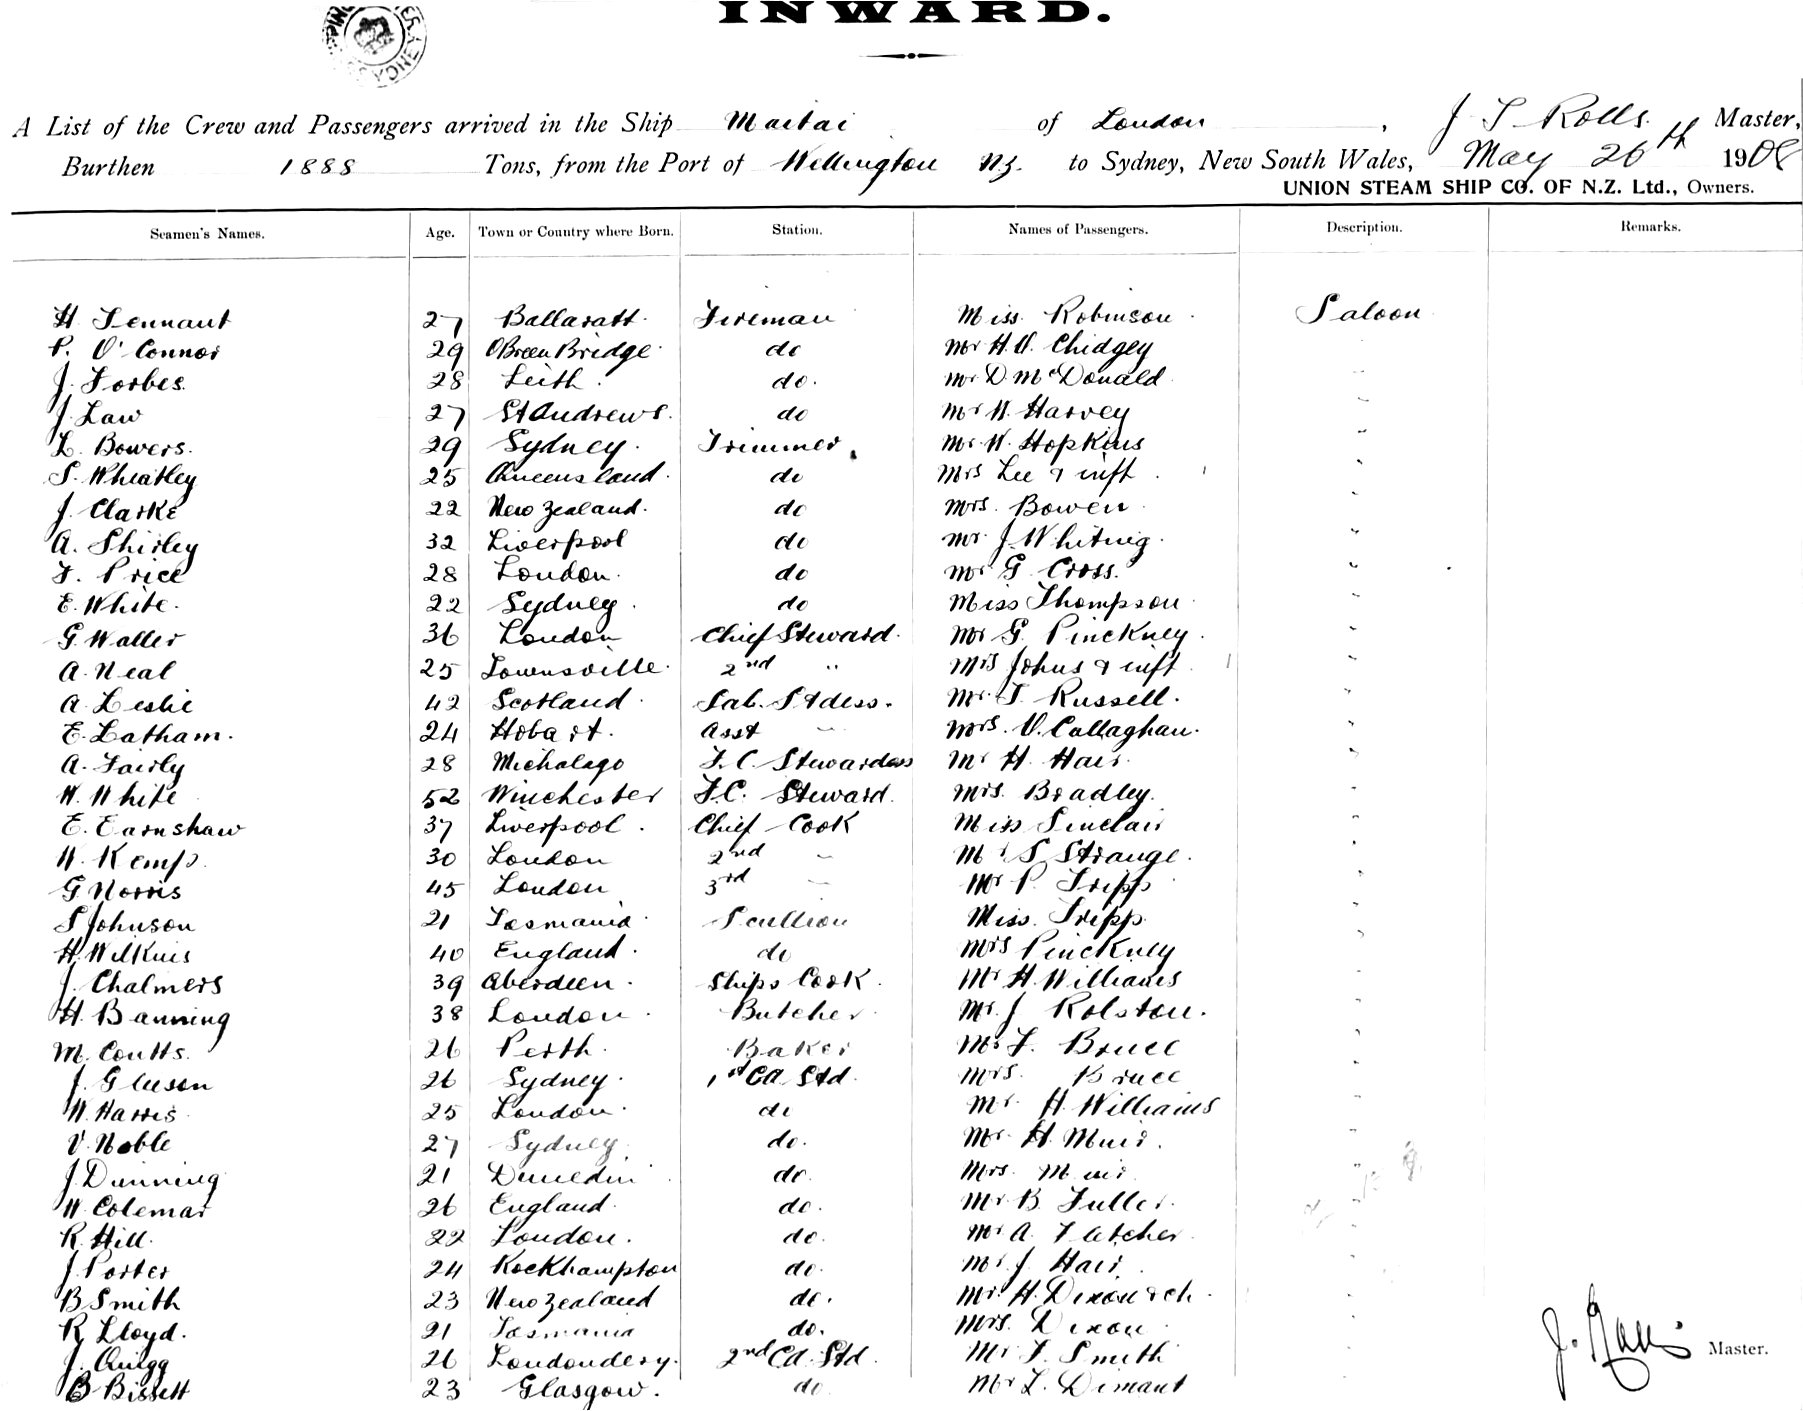 INWARD.
A List of the Crew and Passengers arrived in the Ship Maitai of London, J T Rolls. Master,
Burthen 1888 Tons, from the Port of Wellington N.Z. to Sydney, New South Wales, May 26th 1908
UNION STEAM SHIP CO. OF N.Z. Ltd., Owners.
Seamen's Names. Age. Town or Country where Born. Station. Names of Passengers. Description. Remarks.
H Tennant 27 Ballaratt. Fireman Miss. Robinson. Saloon
P. O'Connor 29 OBreen Bridge do Mr H.V. Chidgey "
J. Forbes. 28 Leith. do. Mr D. McDonald "
J. Law 27 St Andrews. do Mr W. Harvey "
L. Bowers. 29 Sydney. Trimmer. Mr. W. Hopkins "
S. Wheatley 25 Queensland. do Mrs Lee & inft. "
J. Clarke 22 New Zealand. do Mrs. Bowen "
A. Shirley 32 Liverpool do Mr. J. Whiting. "
F. Price 28 London. do Mr G Cross. "
E. White. 22 Sydney. do Miss Thompson. "
G Waller 36 London Chief Steward. Mr G. Pinckney. "
A. Neal 25 Townsville. 2nd " Mrs Johns & inft "
A. Leslie 42 Scotland. Sab. Stdess. Mr. T. Russell. "
E. Latham. 24 Hobart. Asst " Mrs. O. Callaghan. "
A. Fairly 28 Michalago F.C. Stewardess Mr H. Hair. "
W. White 52 Winchester F.C. Steward. Mrs. Bradley. "
E. Earnshaw 37 Liverpool. Chief Cook Miss Sinclair "
W. Kemp. 30 London 2nd " Mr S. Strange. "
G Norris 45 London 3rd " Mr P. Tripp "
S Johnson 21 Tasmania. Scullion Miss. Tripp. "
H. Wilkins 40 England. do Mrs Pinckney "
J. Chalmers 39 Aberdeen. Ships Cook. Mr H. Williams "
H. Banning 38 London. Butcher. Mr. J Rolston. "
M. Coutts. 26 Perth. Baker Mr F. Bruce "
J. Gleeson 26 Sydney. 1st Cd. Std. Mrs. Bruce "
W. Harris. 25 London. do Mr. H. Williams "
V. Noble 27 Sydney. do. Mr. H. Muir. "
J. Dunning 21 Dunedin do. Mrs. Muir "
W. Coleman 26 England. do. Mr B. Fuller. "
R. Hill. 22 London. do. Mr A. Fletcher. "
J. Porter 24 Rockhampton do. Mr. J. Hair. "
B Smith 23 New Zealand do. Mr. H. Dixon & ch. "
R Lloyd. 21 Tasmania do. Mrs. Dixon "
J. Quigg 26 Londondery. 2nd Cd. Std. Mr F. Smith "
B Bissett 23 Glasgow. do. Mr L. Dimant "
J. Rolls Master.